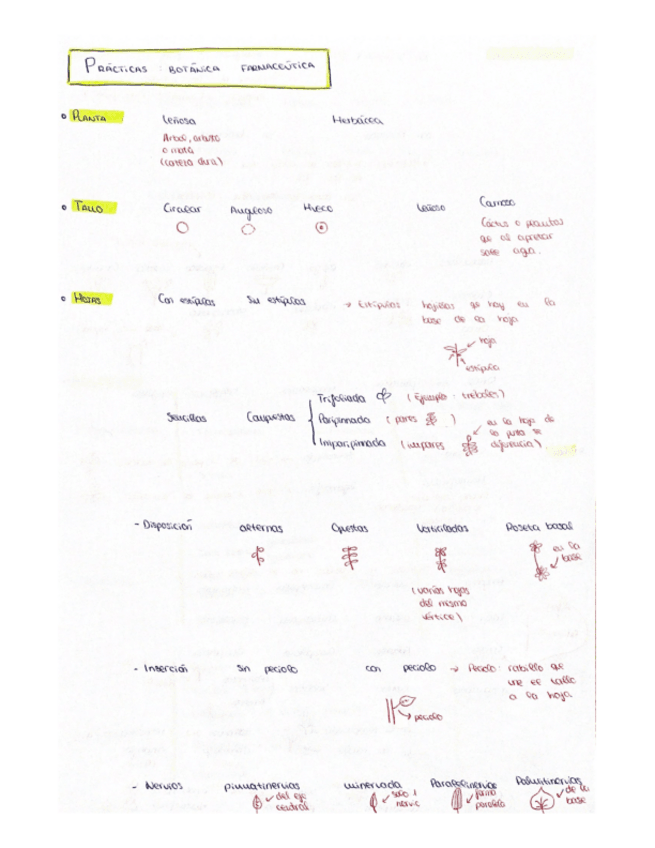 PRÁCTICAS : BOTÁNICA FARMACEÚTICA
PLANTA leñosa Herbácea
Arbol, arbusto
o mata
(corteza dura)
TALLO Circular Anguloso Hueco leñoso Carnoso
Cáctus o plantas
que al apretar
sale agua.
HOJAS Con estípulas Sin estípulas → Estípulas: hojillas q hay en la
base de la hoja
hoja
estípula
Trifoliada (Ejemplo: treboles)
Sencillas Compuestas Paripinnada (pares) en la hoja de
la punta se
Imparipinnada (impares diferencia)
- Disposición alternas Opuestas Verticiladas Roseta basal
en la
base
(varias hojas
del mismo
vértice)
- Inserción sin peciolo con peciolo → Peciolo: rabillo que
une el tallo
a la hoja.
peciolo
- Nervios pinnatinervias uninervada Paralelinervias Palmatinervias
del eje
central
solo 1
nervio
forma
paralela
de la
base